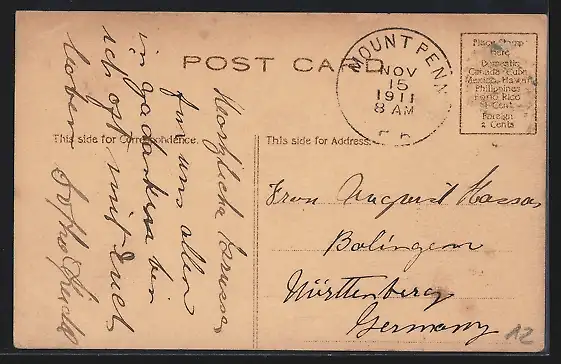 POST CARD
MOUNT PENN
NOV
15
1911
8 AM
Place Stamp
Here
Domestic
Canada Cuba
Mexico Hawaii
Philippines
Porto Rico
1 Cent
Foreign
2 Cents
This side for Correspondence.
This side for Address.
Herzliche Grüsse
für uns allen
in gedanken bin
ich oft mit Euch
Frau August
Balingen
Württenberg
Germany
AZ